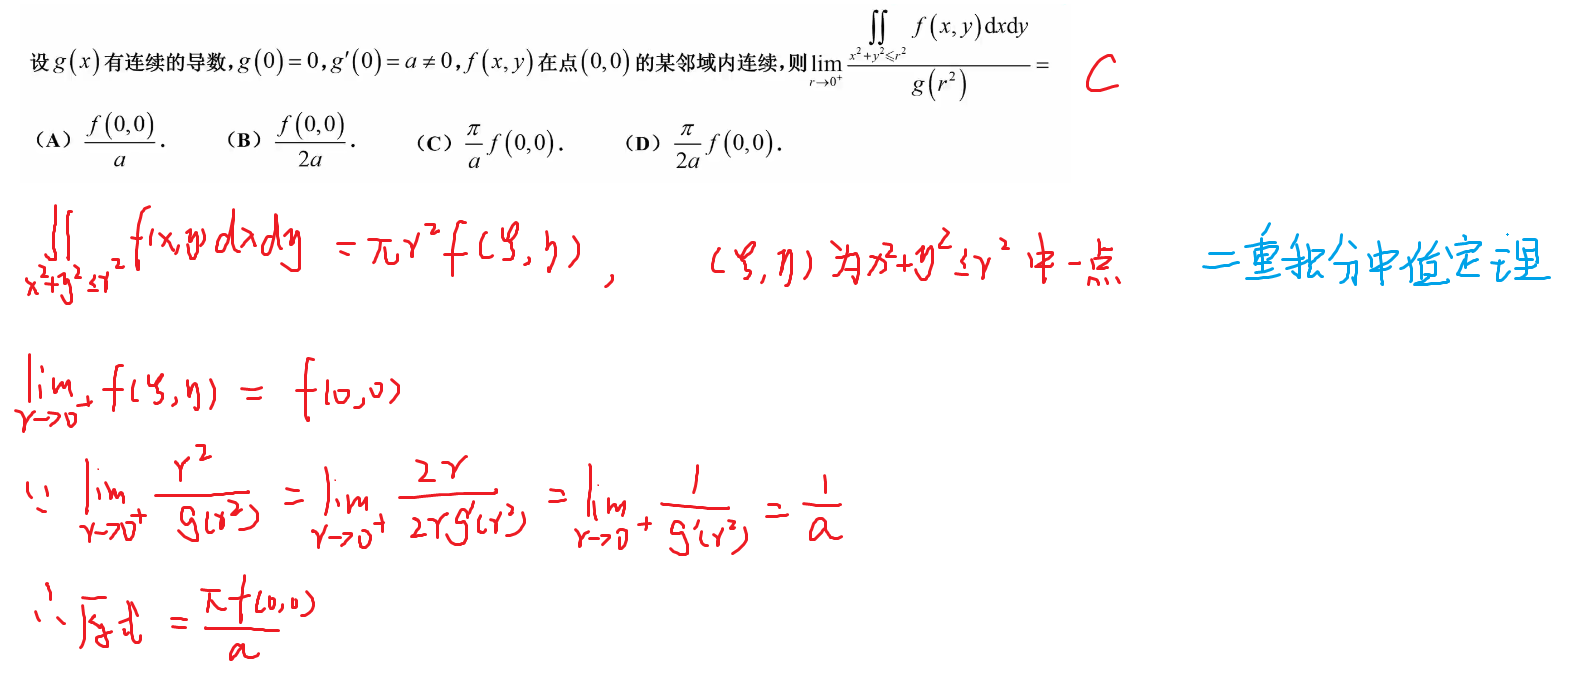 设g(x)有连续的导数,g(0)=0,g′(0)=a≠0,f(x,y)在点(0,0)的某邻域内连续,则lim_{r→0⁺} ∬_{x²+y²≤r²} f(x,y)dxdy / g(r²) = C
(A) f(0,0)/a. (B) f(0,0)/2a. (C) π/a f(0,0). (D) π/2a f(0,0).
∬_{x²+y²≤r²} f(x,y)dxdy = πr²f(ξ,η), (ξ,η)为x²+y²≤r²中一点 =重积分中值定理
lim_{r→0⁺} f(ξ,η) = f(0,0)
∵ lim_{r→0⁺} r²/g(r²) = lim_{r→0⁺} 2r/2rg′(r²) = lim_{r→0⁺} 1/g′(r²) = 1/a
∴ 原式 = πf(0,0)/a